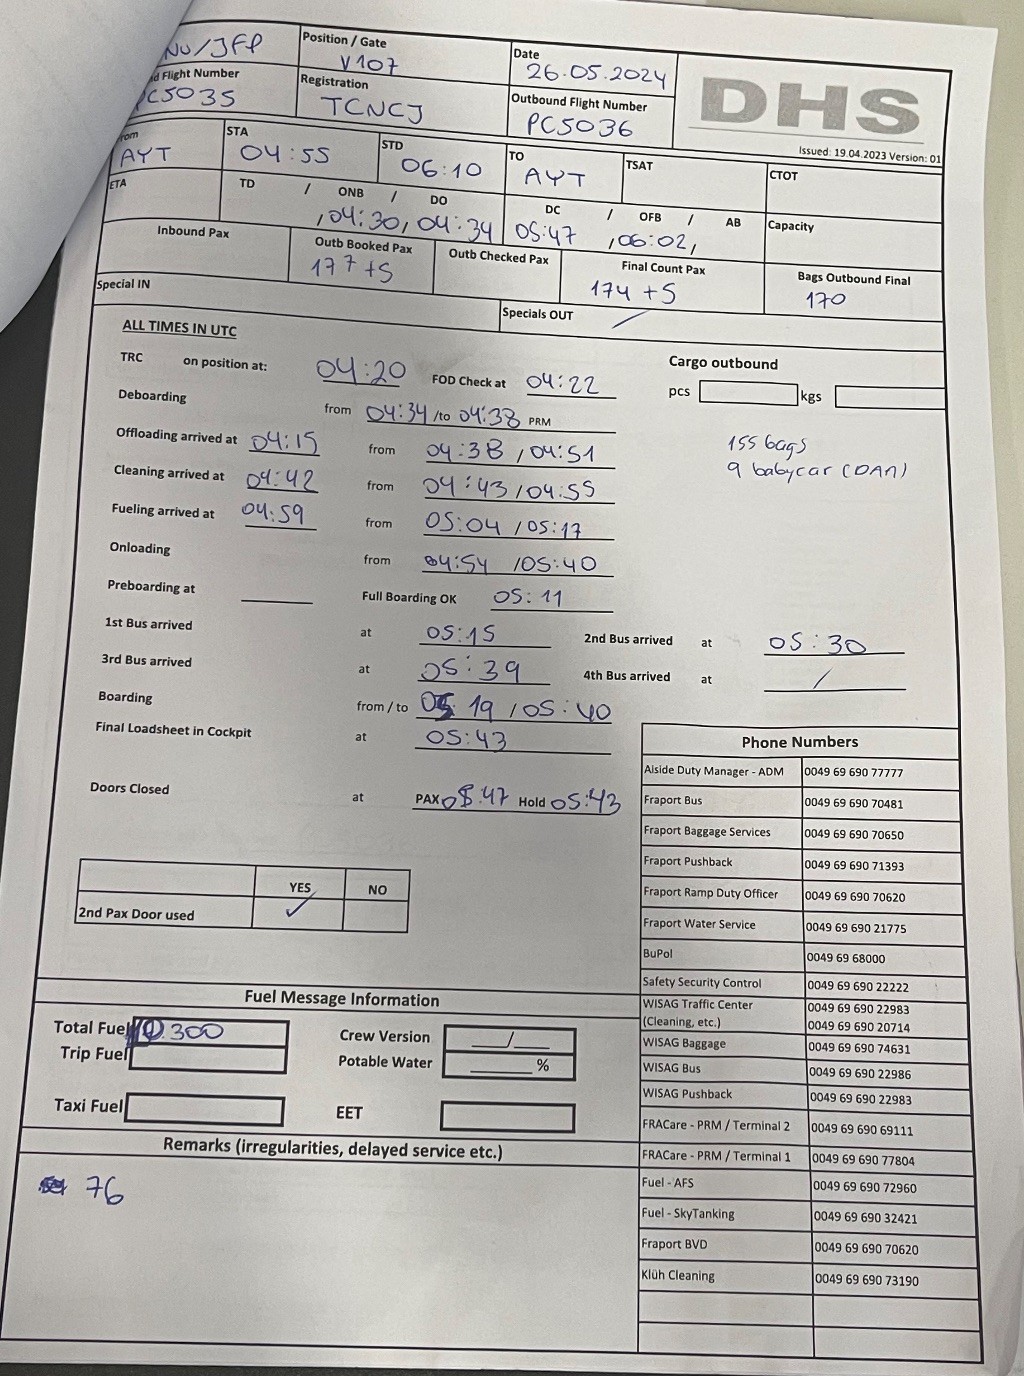 NU/JFP
Position / Gate
V107
Date
26.05.2024
DHS
Issued: 19.04.2023 Version: 01
d Flight Number
PC5035
Registration
TCNCJ
Outbound Flight Number
PC5036
From
AYT
STA
04:55
STD
06:10
TO
AYT
TSAT
CTOT
ETA
TD / ONB / DO
, 04:30, 04:34
DC / OFB / AB
05:47 , 06:02,
Capacity
Inbound Pax
Outb Booked Pax
177 +5
Outb Checked Pax
Final Count Pax
174 +5
Bags Outbound Final
170
Special IN
Specials OUT /
ALL TIMES IN UTC
TRC on position at: 04:20 FOD Check at 04:22
Cargo outbound
pcs kgs
Deboarding from 04:34 /to 04:38 PRM
155 bags
9 babycar (DAA)
Offloading arrived at 04:15 from 04:38 / 04:51
Cleaning arrived at 04:42 from 04:43 / 04:55
Fueling arrived at 04:59 from 05:04 / 05:17
Onloading from 04:54 / 05:40
Preboarding at Full Boarding OK 05:11
1st Bus arrived at 05:15 2nd Bus arrived at 05:30
3rd Bus arrived at 05:39 4th Bus arrived at /
Boarding from / to 05 19 / 05:40
Final Loadsheet in Cockpit at 05:43
Doors Closed at PAX 05:47 Hold 05:43
YES NO
2nd Pax Door used ✓
Phone Numbers
Alside Duty Manager - ADM 0049 69 690 77777
Fraport Bus 0049 69 690 70481
Fraport Baggage Services 0049 69 690 70650
Fraport Pushback 0049 69 690 71393
Fraport Ramp Duty Officer 0049 69 690 70620
Fraport Water Service 0049 69 690 21775
BuPol 0049 69 68000
Safety Security Control 0049 69 690 22222
WISAG Traffic Center 0049 69 690 22983
(Cleaning, etc.) 0049 69 690 20714
WISAG Baggage 0049 69 690 74631
WISAG Bus 0049 69 690 22986
WISAG Pushback 0049 69 690 22983
FRACare - PRM / Terminal 2 0049 69 690 69111
FRACare - PRM / Terminal 1 0049 69 690 77804
Fuel - AFS 0049 69 690 72960
Fuel - SkyTanking 0049 69 690 32421
Fraport BVD 0049 69 690 70620
Klüh Cleaning 0049 69 690 73190
Fuel Message Information
Total Fuel 300
Crew Version /
Trip Fuel
Potable Water %
Taxi Fuel
EET
Remarks (irregularities, delayed service etc.)
76